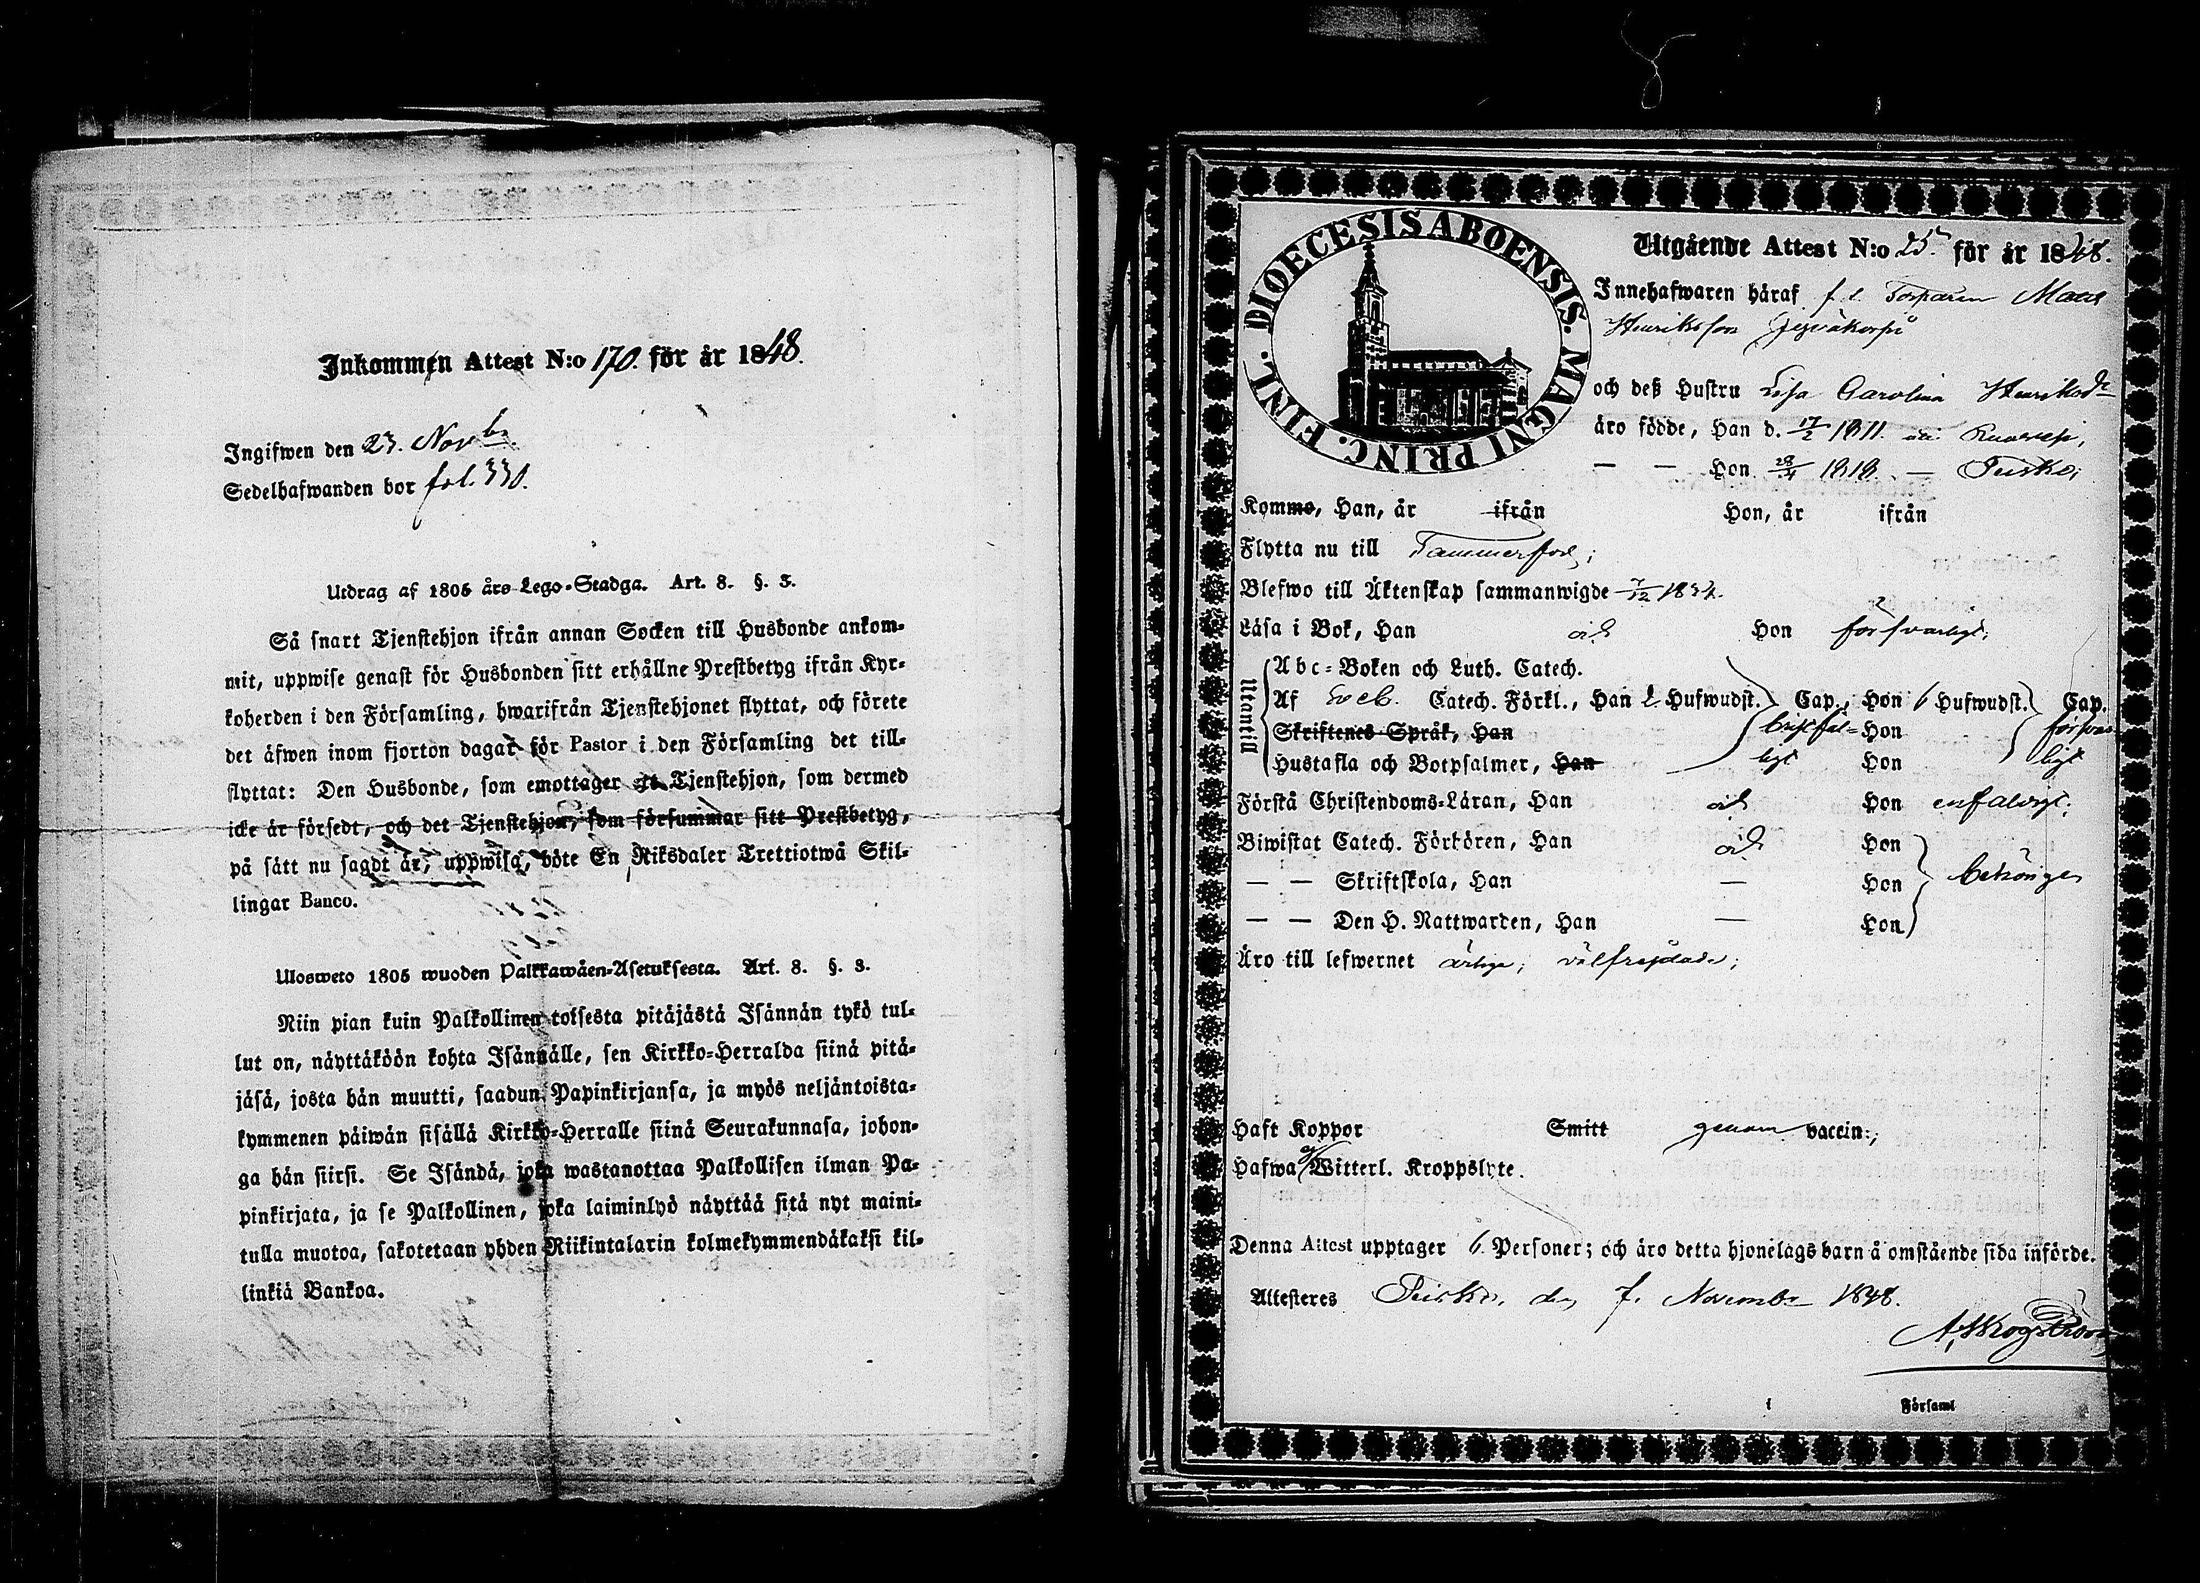 Inkommen Attest N:o 170. för år 1848.
Ingifwen den 23. Novbr.
Sedelhafwanden bor fol. 330.
Utdrag af 1805 års Lego-Stadga. Art. 8. §. 3.
Så snart Tjenstehjon ifrån annan Socken till Husbonde ankom-
mit, uppwise genast för Husbonden sitt erhållne Prestbetyg ifrån Kyr-
koherden i den Församling, hwarifrån Tjenstehjonet flyttat, och förete
det äfwen inom fjorton dagar för Pastor i den Församling det till-
flyttat: Den Husbonde, som emottager ett Tjenstehjon, som dermed
icke är försedt, och det Tjenstehjon, som försummar sitt Prestbetyg,
på sätt nu sagdt är, uppwisa, böte En Riksdaler Trettiotwå Skil-
lingar Banco.
Ulosweto 1805 wuoden Palkkawäen-Asetuksesta. Art. 8. §. 3.
Niin pian kuin Palkollinen toisesta pitäjästä Isännän tykö tul-
lut on, näyttäköön kohta Isännälle, sen Kirkko-Herralda siinä pitä-
jäsä, josta hän muutti, saadun Papinkirjansa, ja myös neljäntoista-
kymmenen päiwän sisällä Kirkko-Herralle siinä Seurakunnasa, johon-
ga hän siirsi. Se Isändä, joka wastanottaa Palkollisen ilman Pa-
pinkirjata, ja se Palkollinen, joka laiminlyö näyttää sitä nyt maini-
tulla muotoa, sakotetaan yhden Riikintalarin kolmekymmendäkaksi kil-
linkiä Bankoa.
DIOECESIS ABOENSIS. MAGNI PRINC. FINL.
Utgående Attest N:o 25. för år 1848.
Innehafwaren häraf f. d. Torparen
Henriksson
och deß Hustru Lisa Carolina Henriksdr
äro födde, Han d. 17/2 1811. i
— — Hon 28/4 1818. —
Komme, Han, år ifrån Hon, år ifrån
Flytta nu till Tammerfors;
Blefwo till Äktenskap sammanwigde 7/12 1834.
Läsa i Bok, Han och Hon försvarligt;
Utantill
Abc-Boken och Luth. Catech.
Af Catech. Förkl., Han 2 Hufwudst. Cap., Hon 6 Hufwudst. Cap.
Skriftenes Språk, Han bristfäl- Hon försvar
Hustafla och Botpsalmer, Han ligt Hon ligt
Förstå Christendoms-Läran, Han och Hon enfaldigt.
Biwistat Catech. Förhören, Han och Hon
— — Skriftskola, Han — Hon behörigen
— — Den H. Nattwarden, Han — Hon
Äro till lefwernet ärlige; välfrejdade;
Haft Koppor Smitt genom vaccin.;
Hafwa ej Witterl. Kroppslyte.
Denna Attest upptager 6 Personer; och äro detta hjonelags barn å omstående sida införde.
Attesteres den 7. Novembr 1848.
A. Skogström
i Församl